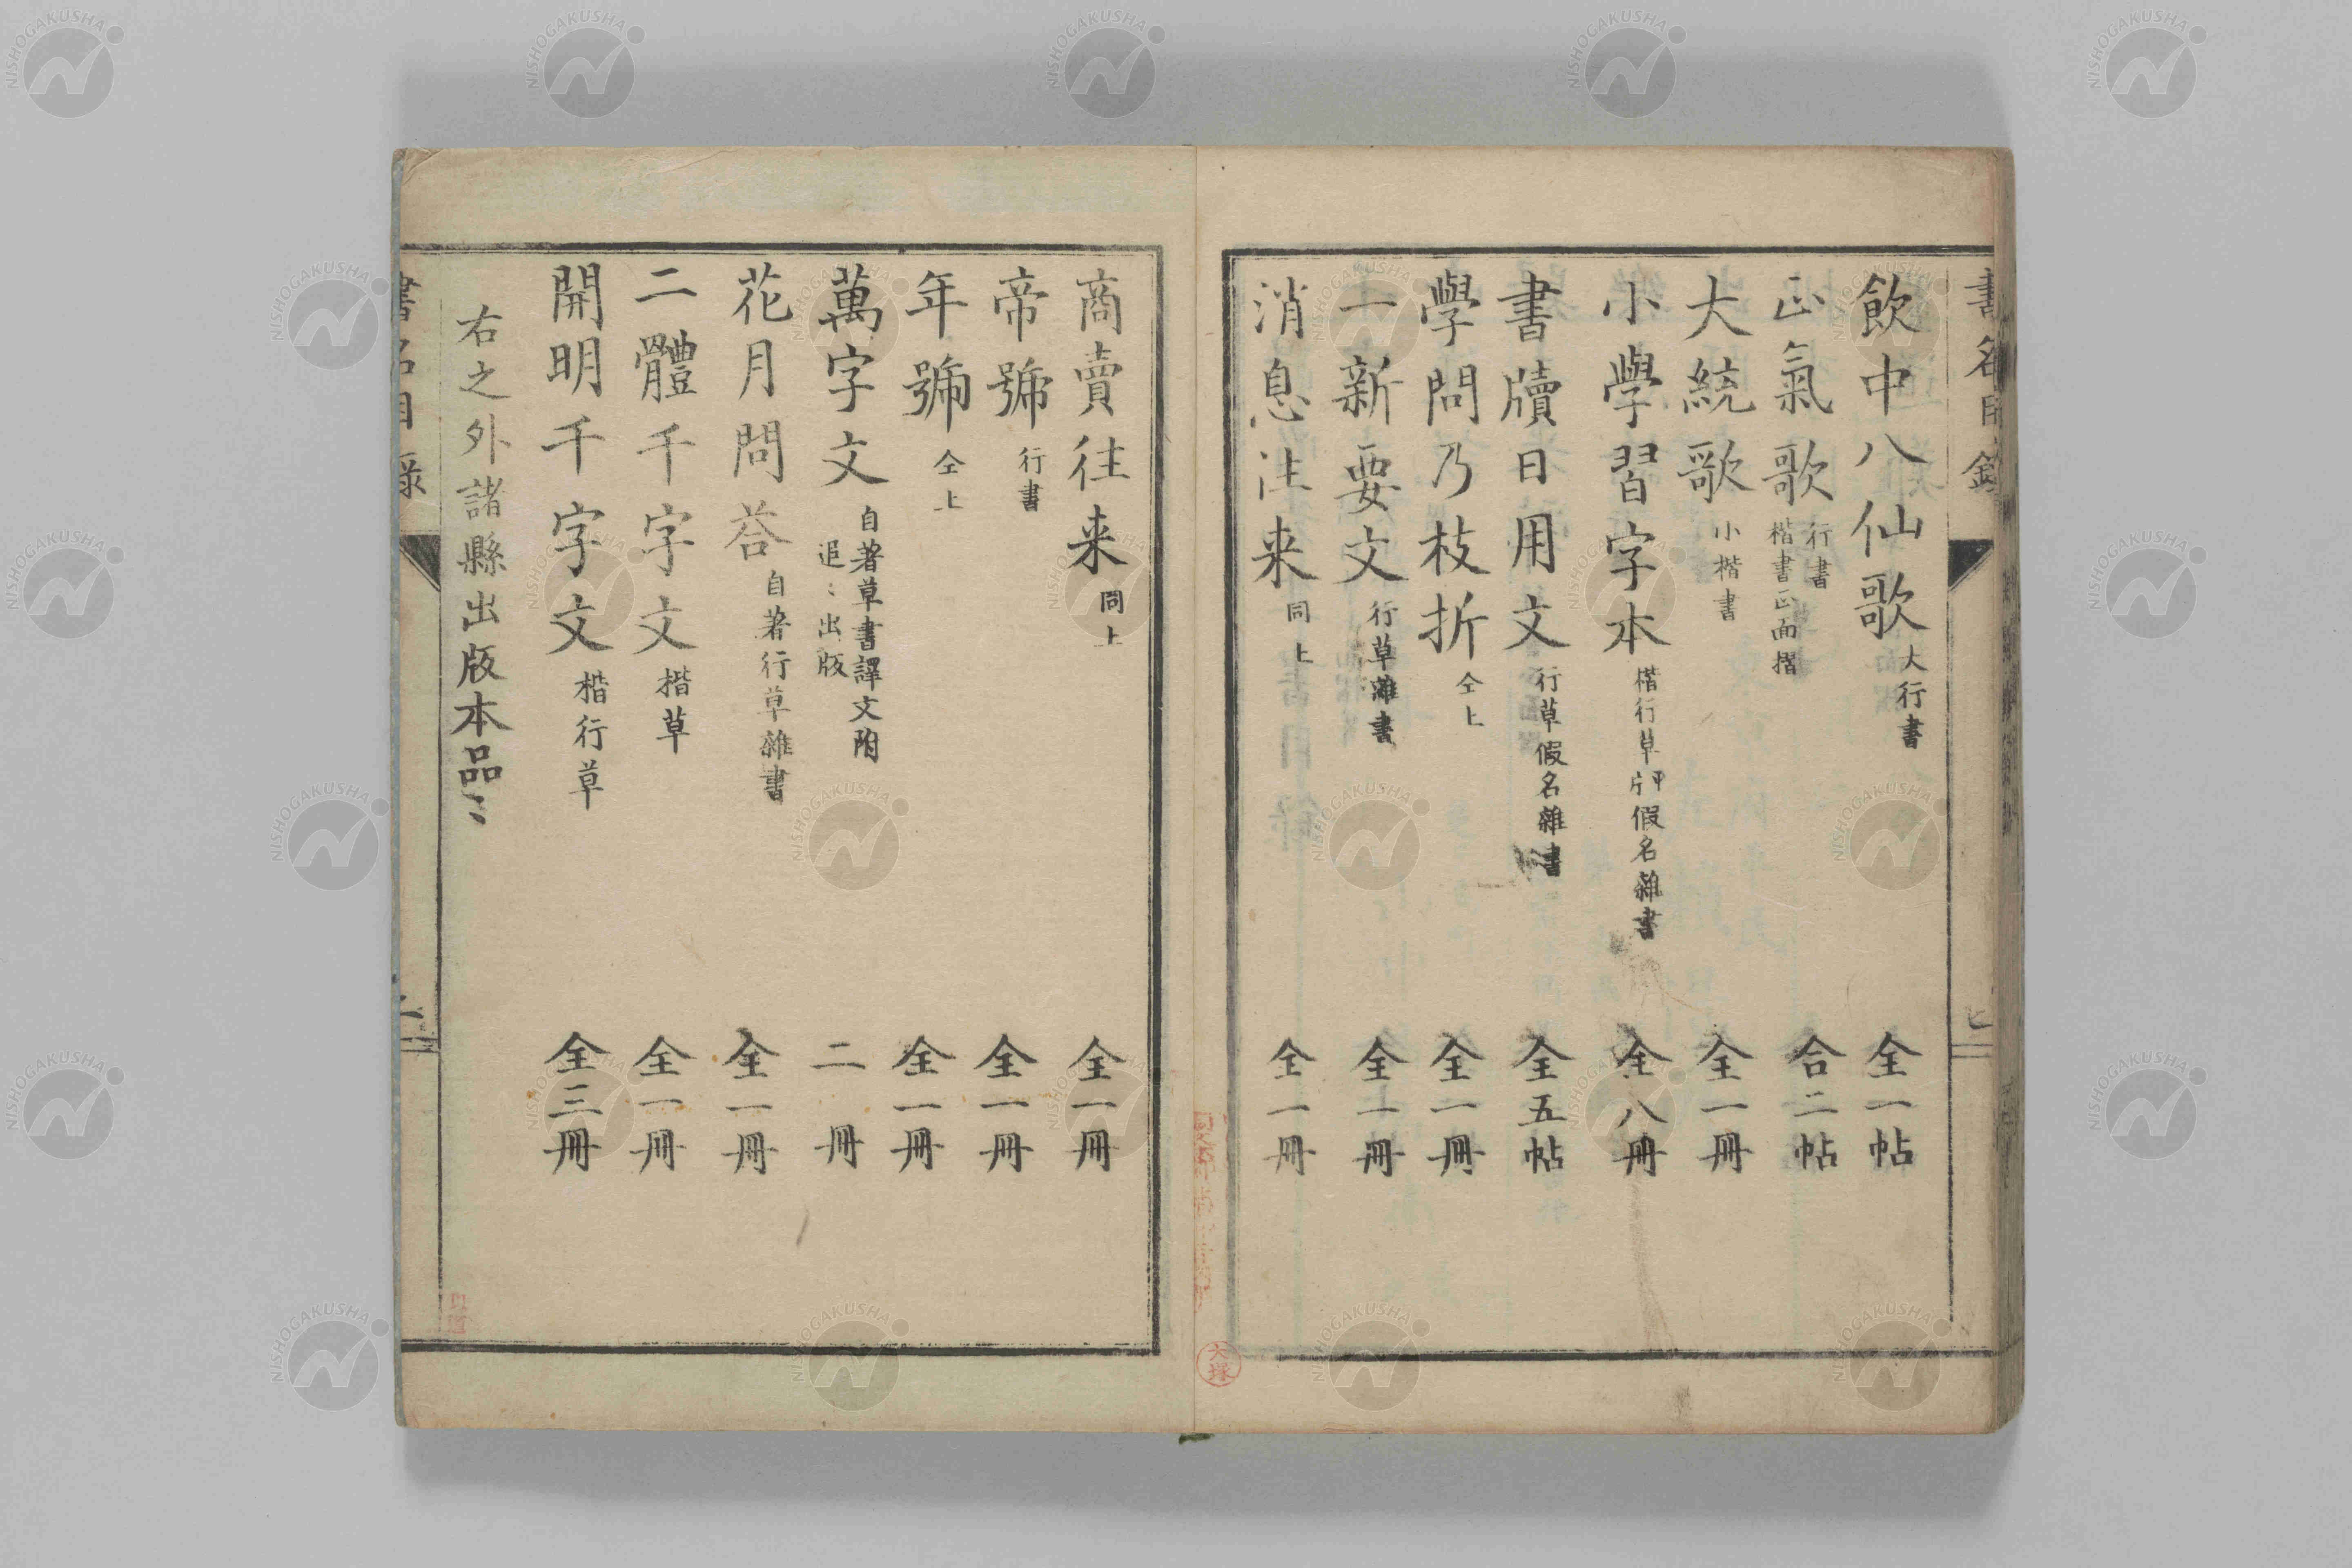 書名目録
飲中八仙歌 大行書 全一帖
正氣歌 行書 楷書正面摺 合二帖
大統歌 小楷書 全一冊
小學習字本 楷行草片甲假名雜書 全八冊
書牘日用文 行草假名雜書 全五帖
學問乃枝折 仝上 全一冊
一新要文 行草雜書 全一冊
消息往来 同上 全一冊
商賣往来 同上 全一冊
帝號 行書 全一冊
年號 仝上 全一冊
萬字文 自著草書譯文附 追〻出版 二冊
花月問荅 自著行草雜書 全一冊
二體千字文 楷草 全一冊
開明千字文 楷行草 全三冊
右之外諸縣出版本品〻
書名目録
大塚
NISHOGAKUSHA